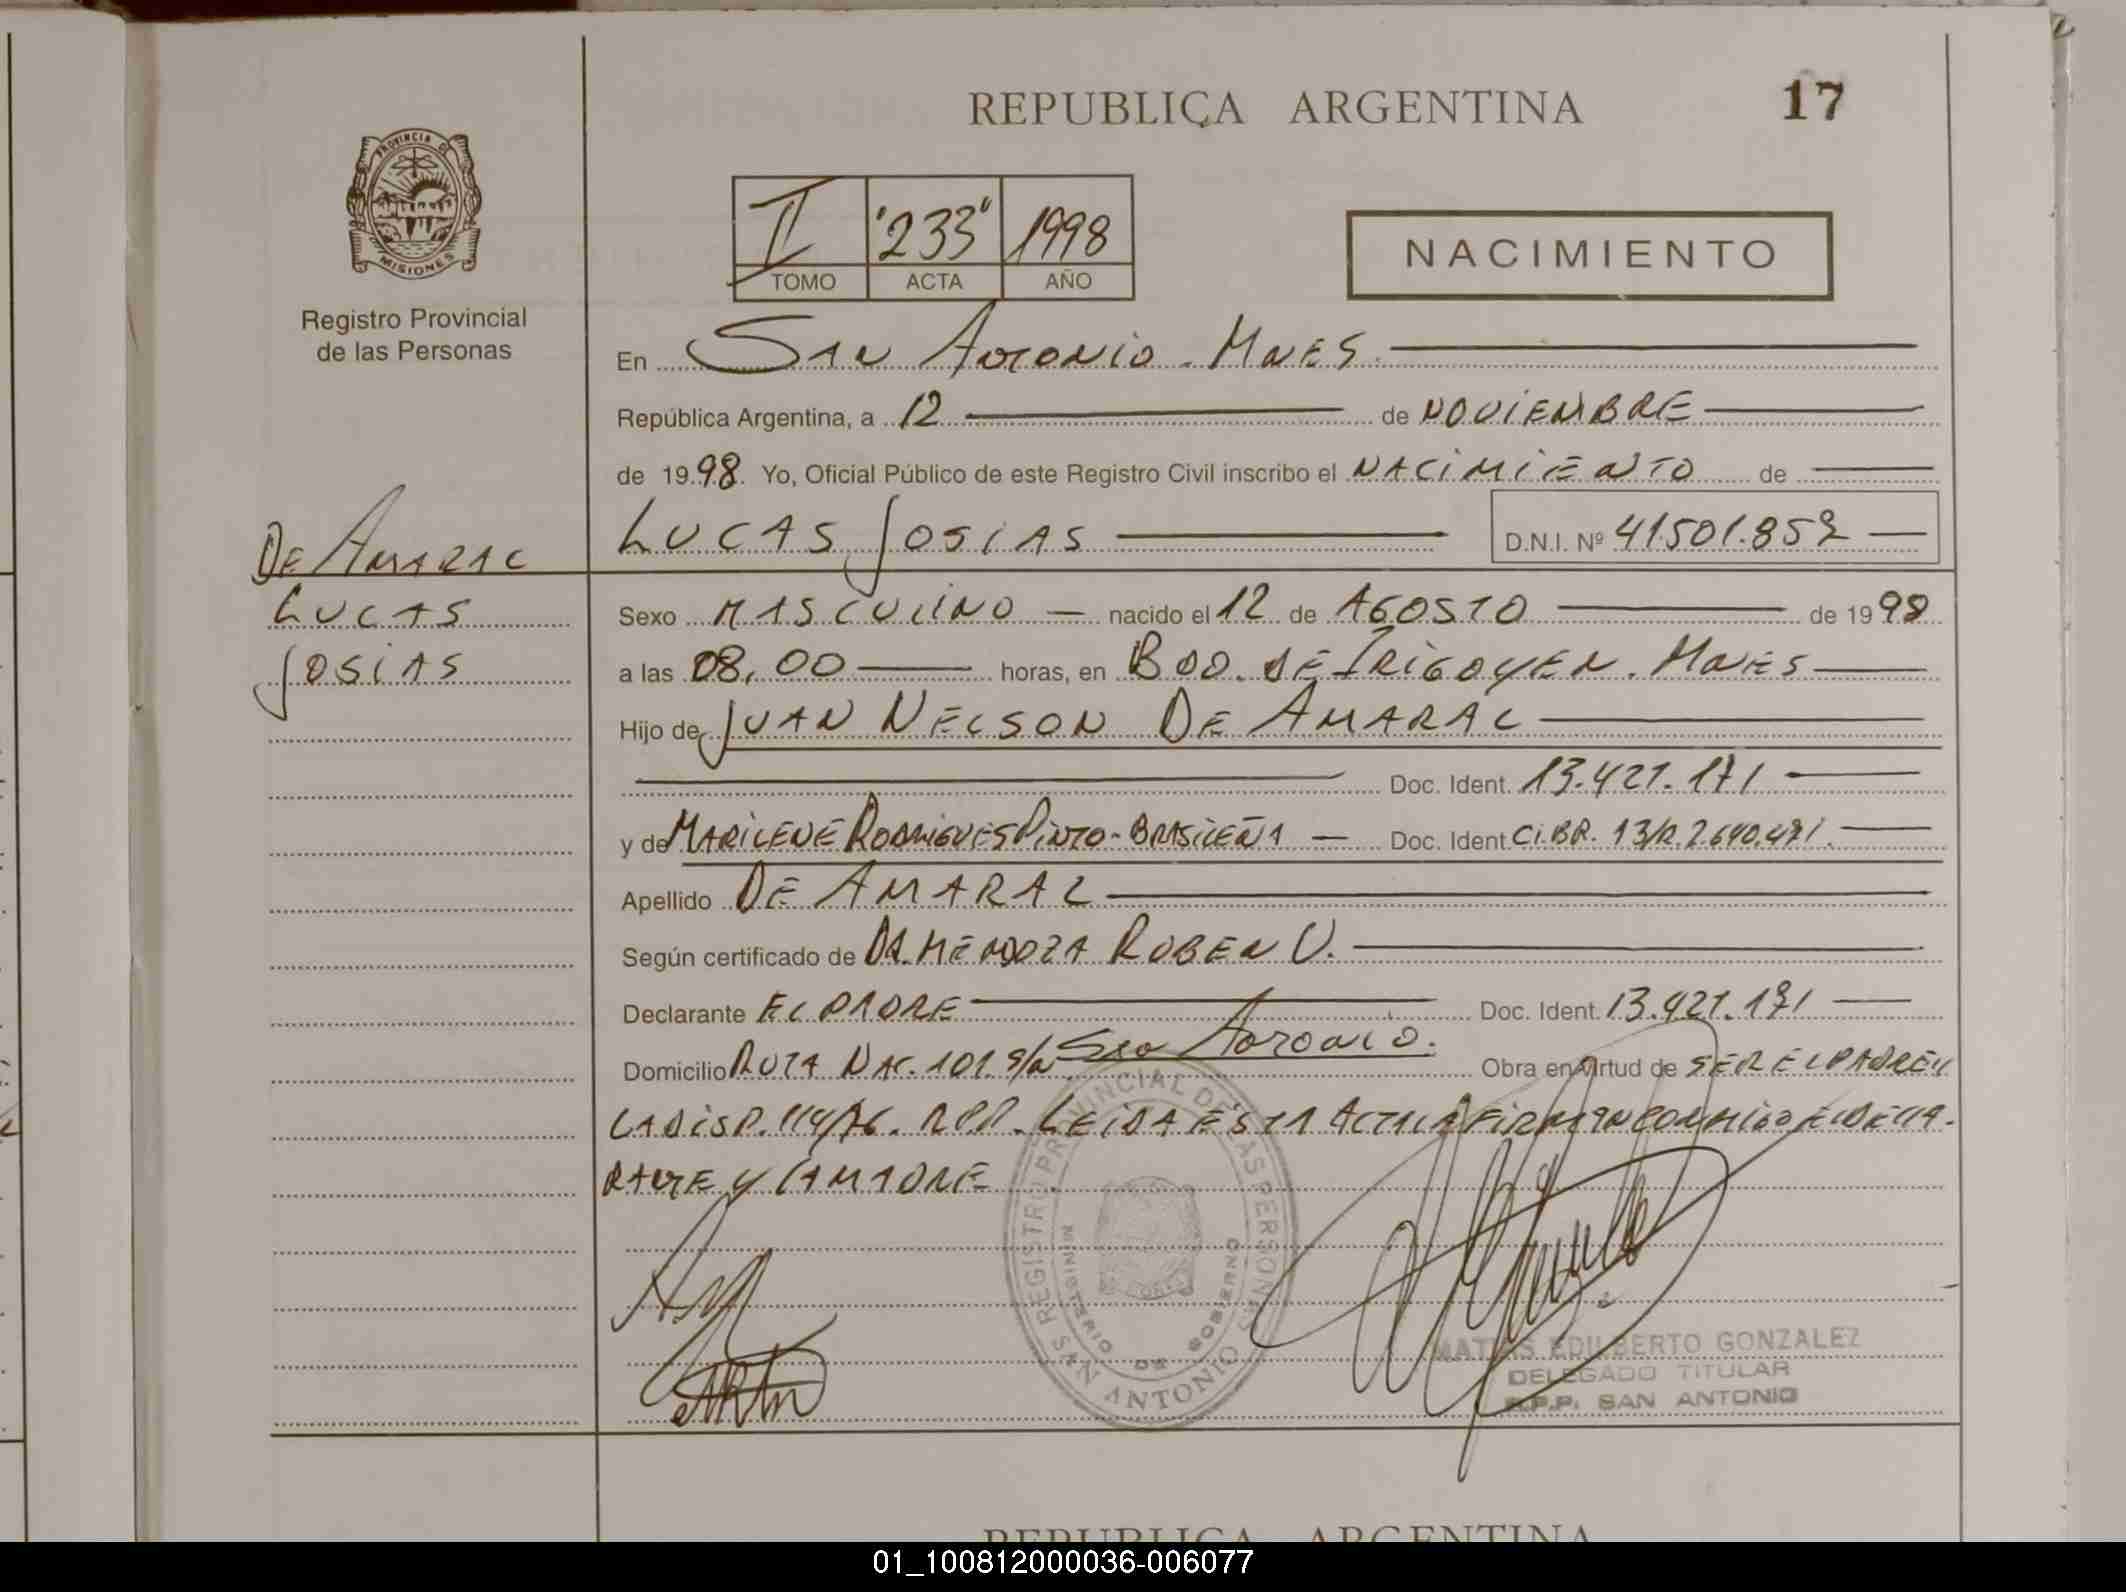 REPUBLICA ARGENTINA
17
PROVINCIA DE
MISIONES
Registro Provincial
de las Personas
II '233" 1998
TOMO ACTA AÑO
NACIMIENTO
En San Antonio. Mnes.
República Argentina, a 12 de NOVIEMBRE
de 1998. Yo, Oficial Público de este Registro Civil inscribo el NACIMIENTO de
LUCAS JOSIAS D.N.I. Nº 41.501.852
DE AMARAL
LUCAS
JOSIAS
Sexo MASCULINO nacido el 12 de AGOSTO de 1998
a las 08,00 horas, en BDO. DE IRIGOYEN. MNES
Hijo de JUAN NELSON DE AMARAL
Doc. Ident. 13.421.171
y de MARILENE RODRIGUES PINTO - BRASILEÑA Doc. Ident. CI.BR. 13/R.2.640.471.
Apellido DE AMARAL
Según certificado de DR. MENDOZA RUBEN V.
Declarante EL PADRE Doc. Ident. 13.421.171
Domicilio RUTA NAC. 101 S/N San Antonio. Obra en virtud de SER EL PADRE Y
LA DISP. 114/76. RPP. LEIDA ESTA ACTA LA FIRMAN CONMIGO EL DECLA-
RANTE Y LA MADRE
REGISTRO PROVINCIAL DE LAS PERSONAS
MINISTERIO DE GOBIERNO
SAN ANTONIO
MATIAS EDILBERTO GONZALEZ
DELEGADO TITULAR
R.P.P. SAN ANTONIO
REPUBLICA ARGENTINA
01_100812000036-006077